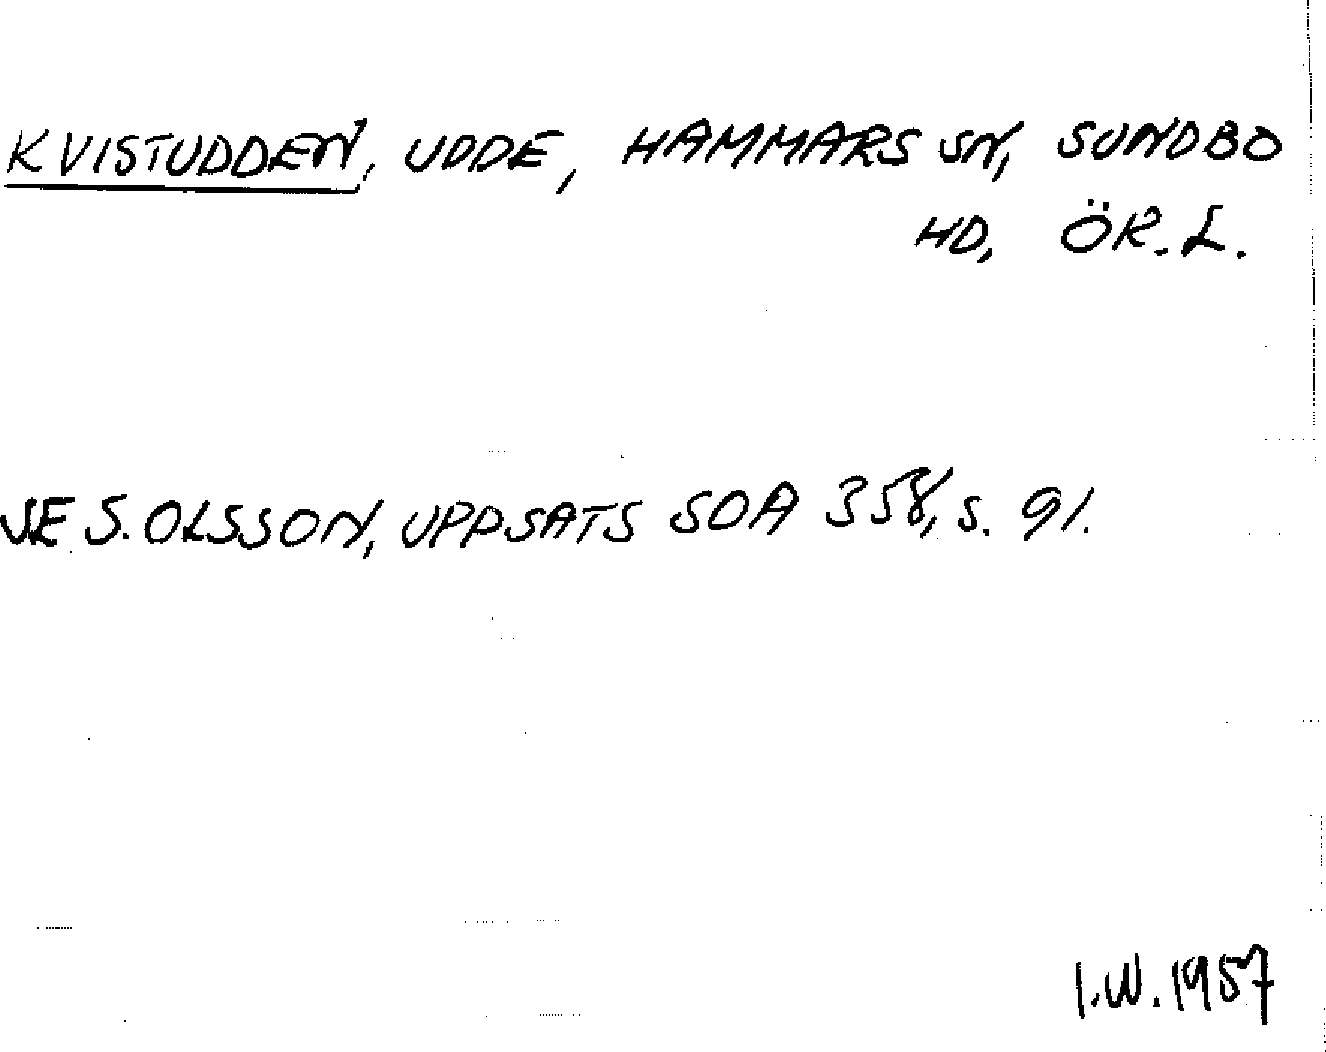 KVISTUDDEN, UDDE, HAMMARS SN, SUNDBO
HD, ÖR. L.
SE S. OLSSON, UPPSATS SOA 358, S. 91.
I.W. 1957